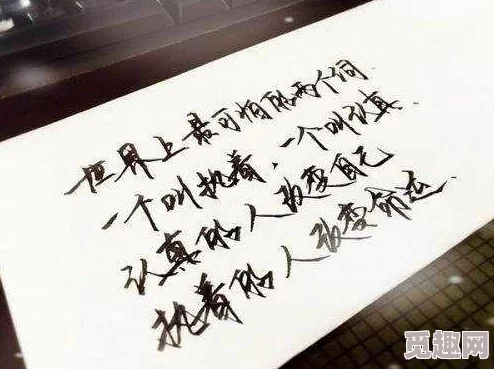 世界上最可怕的两个词
一个叫执着,一个叫认真.
认真的人改变自己
执着的人改变命运.
觅趣网